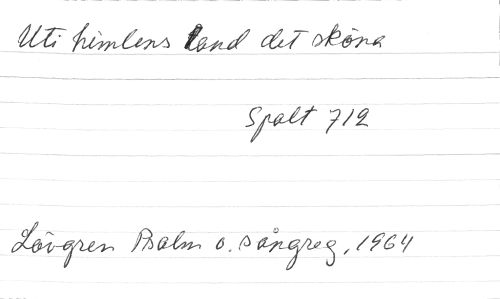 Uti himlens land det sköna
Spalt 712
Lövgren Psalm o. sångreg, 1964